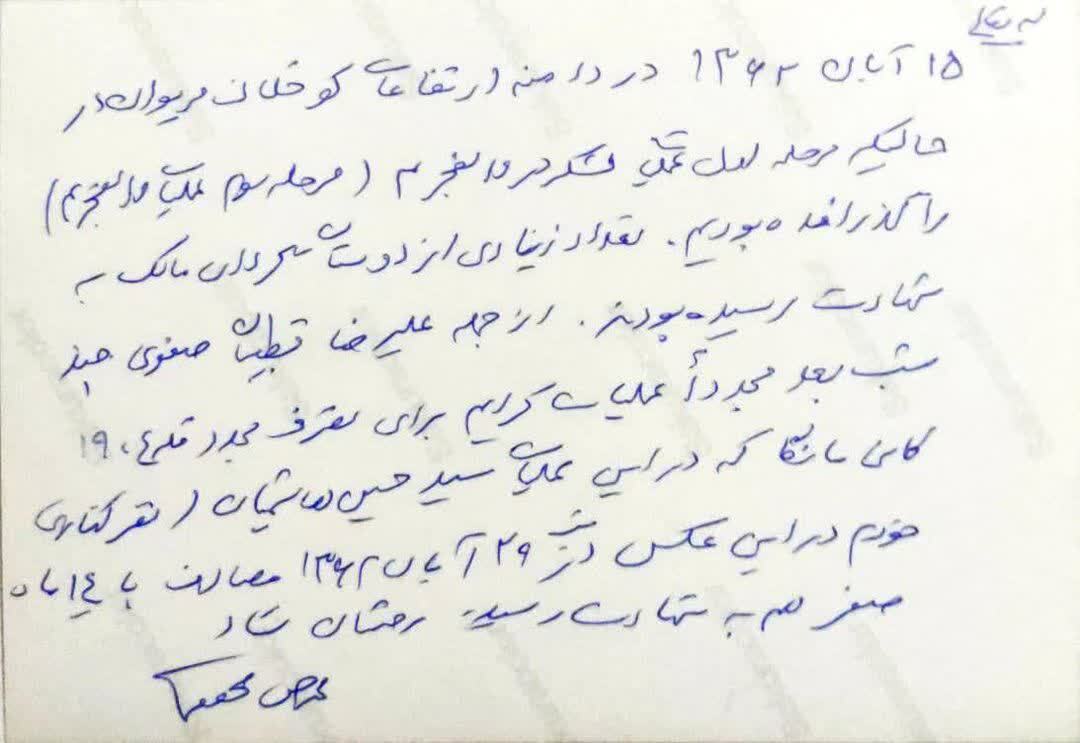 به تعالی
۱۵ آبان ۱۳۶۲ در دامنه ارتفاعات کوخلان مریوان در
حالیکه مرحله اول عملیات لشکر در والفجر ۴ (مرحله سوم عملیات والفجر ۴)
را گذرانده بودیم. تعداد زیادی از دوستان گردان مالک به
شهادت رسیده بودند. از جمله علیرضا قطبیان صفوی چند
شب بعد مجدداً عملیات کردیم برای تصرف مجدد قله ۱۹۰۴
کانی مانگا که در این عملیات سید حسین هاشمیان (نفر کناری
خودم در این عکس در شب ۲۹ آبان ۱۳۶۲ مصادف با ۱۴ ماه
صفر هم به شهادت رسید روحشان شاد